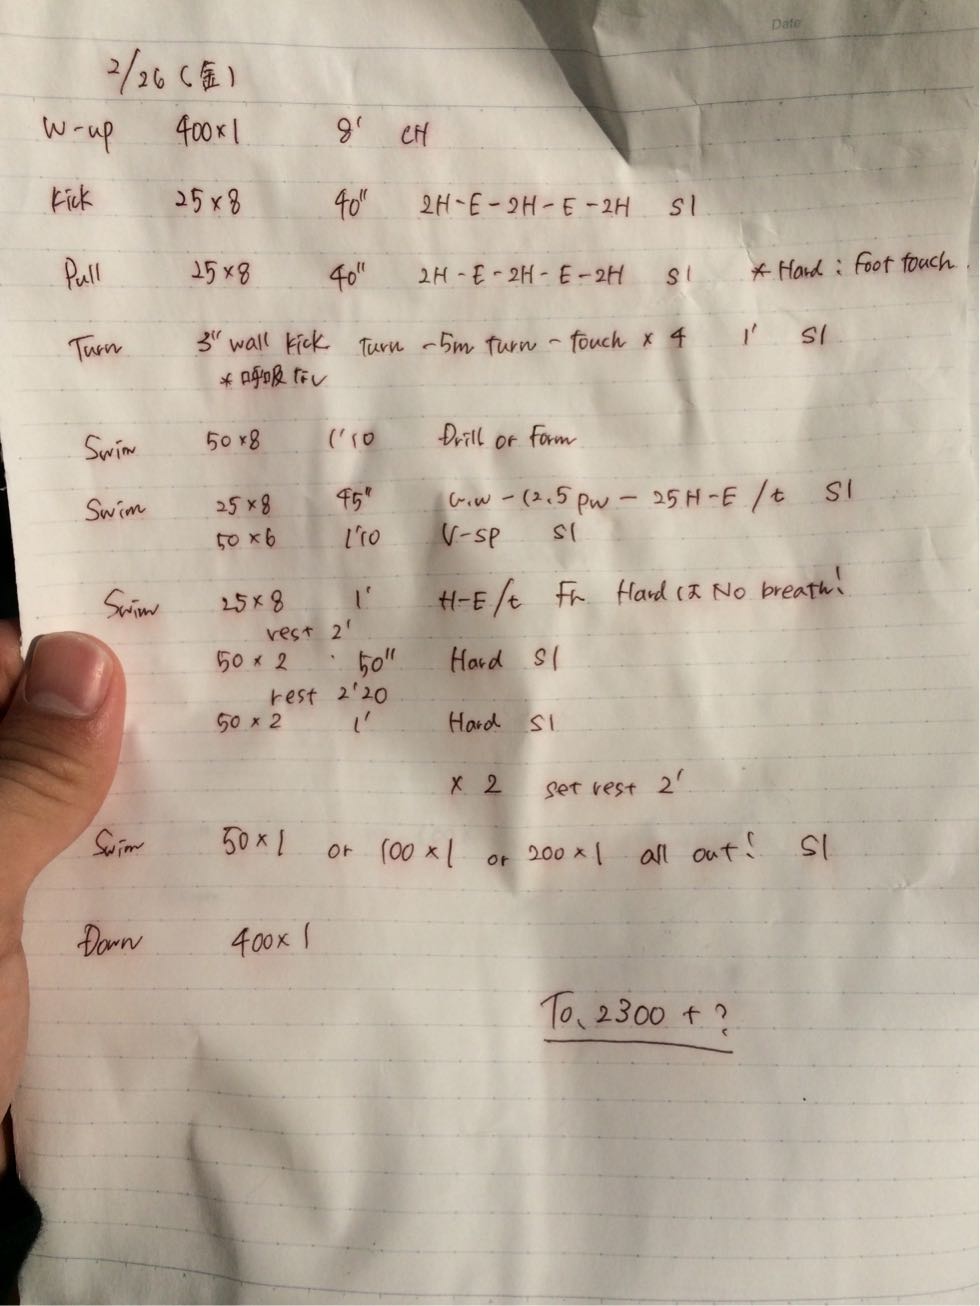 Date
2/26 (金)
W-up 400×1 8' CH
Kick 25×8 40" 2H-E-2H-E-2H S1
Pull 25×8 40" 2H-E-2H-E-2H S1 *Hard : Foot touch
Turn 3" wall kick turn -5m turn - touch × 4 1' S1
*呼吸なし
Swim 50×8 1'10 Drill or Form
Swim 25×8 45" - 12.5 pw - 25H-E /t S1
50×6 1'10 V-sp S1
Swim 25×8 1' H-E/t Fr Hardは No breath!
rest 2'
50×2 50" Hard S1
rest 2'20
50×2 1' Hard S1
×2 set rest 2'
Swim 50×1 or 100×1 or 200×1 all out! S1
Down 400×1
To、2300+?